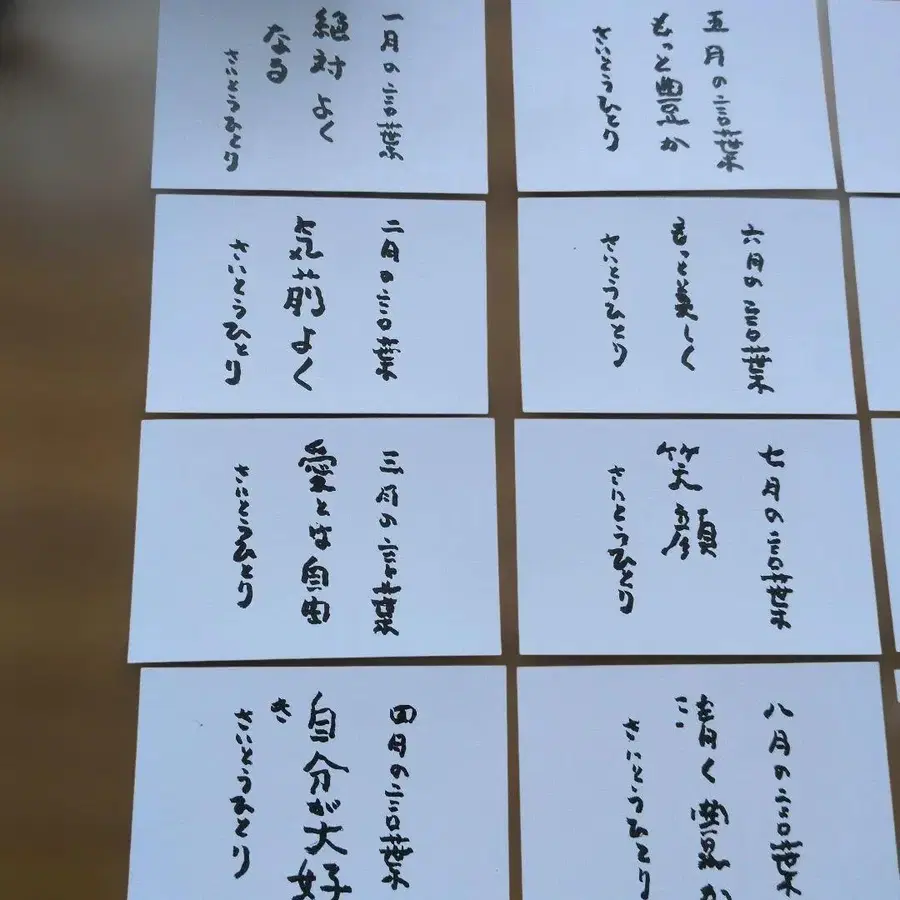 一月の言葉
絶対よく
なる
さいとうひとり
二月の言葉
気前よく
さいとうひとり
三月の言葉
愛とは自由
さいとうひとり
四月の言葉
自分が大好
き
さいとうひとり
五月の言葉
もっと豊か
さいとうひとり
六月の言葉
もっと美しく
さいとうひとり
七月の言葉
笑顔
さいとうひとり
八月の言葉
清く豊か
に
さいとうひとり